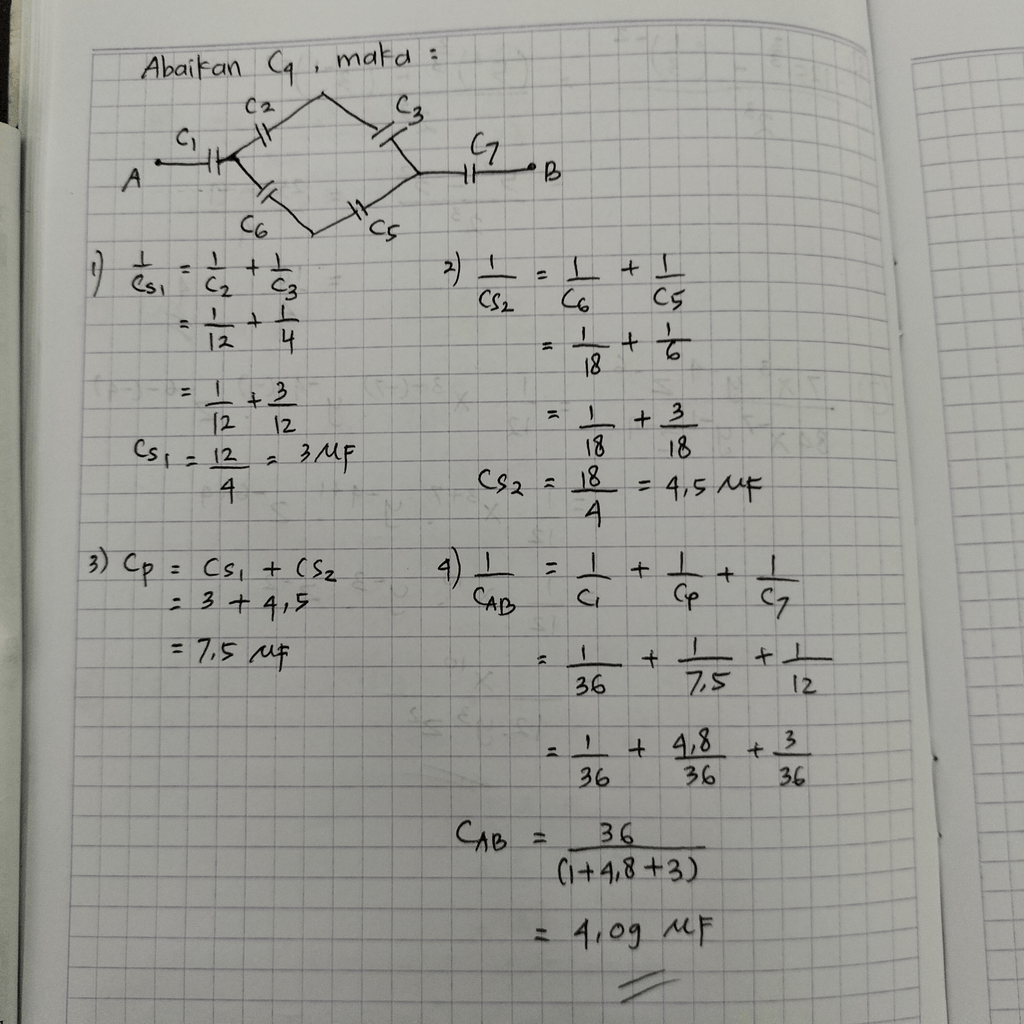 Abaikan C4, maka :
C2
C3
C1
C7
A
B
C6
C5
1) 1/Cs1 = 1/C2 + 1/C3
= 1/12 + 1/4
= 1/12 + 3/12
Cs1 = 12/4 = 3 μF
2) 1/Cs2 = 1/C6 + 1/C5
= 1/18 + 1/6
= 1/18 + 3/18
Cs2 = 18/4 = 4,5 μF
3) Cp = Cs1 + Cs2
= 3 + 4,5
= 7,5 μF
4) 1/CAB = 1/C1 + 1/Cp + 1/C7
= 1/36 + 1/7,5 + 1/12
= 1/36 + 4,8/36 + 3/36
CAB = 36/(1+4,8+3)
= 4,09 μF